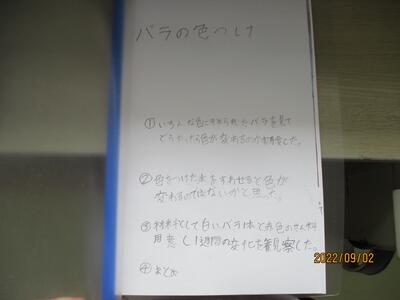 バラの色つけ
①いろんな色にそめられたバラを見て
どうやったら色が変わるのか
した。
②色をつけた水をすわせると色が
変わるのではないかと思った。
③材料として白いバラ1本と赤色のせん料
用意し1週間の変化を観察した。
④まとめ
2022/09/02